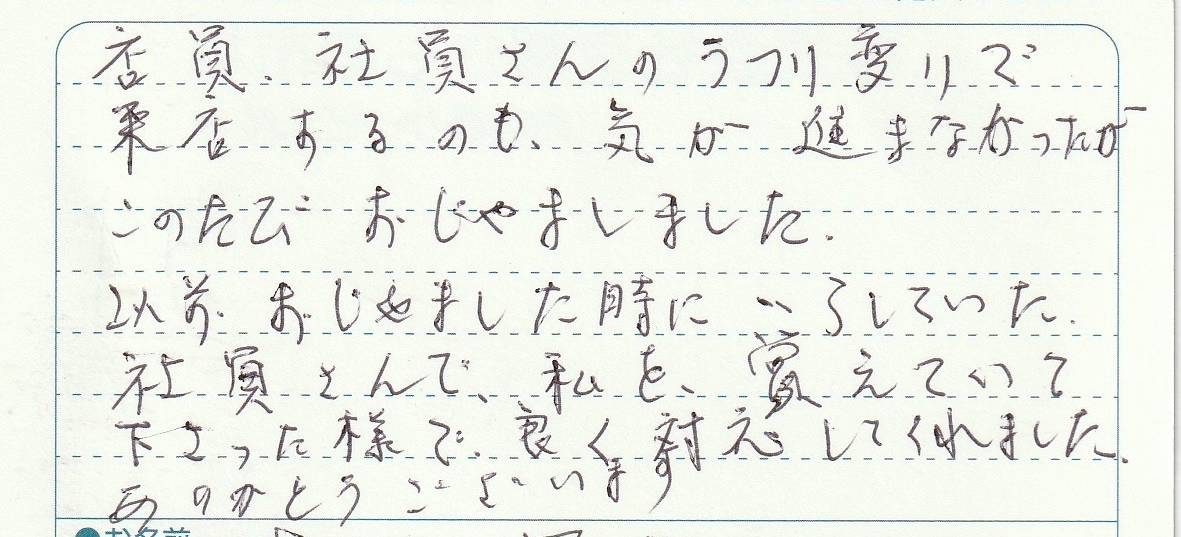 店員、社員さんのうつり変りで
来店するのも、気が進まなかったが
このたび おじゃましました.
以前 おじゃました時に いらしていた.
社員さんで、私を、覚えていて
下さった様で、良く対応してくれました.
ありがとうございます
●お名前